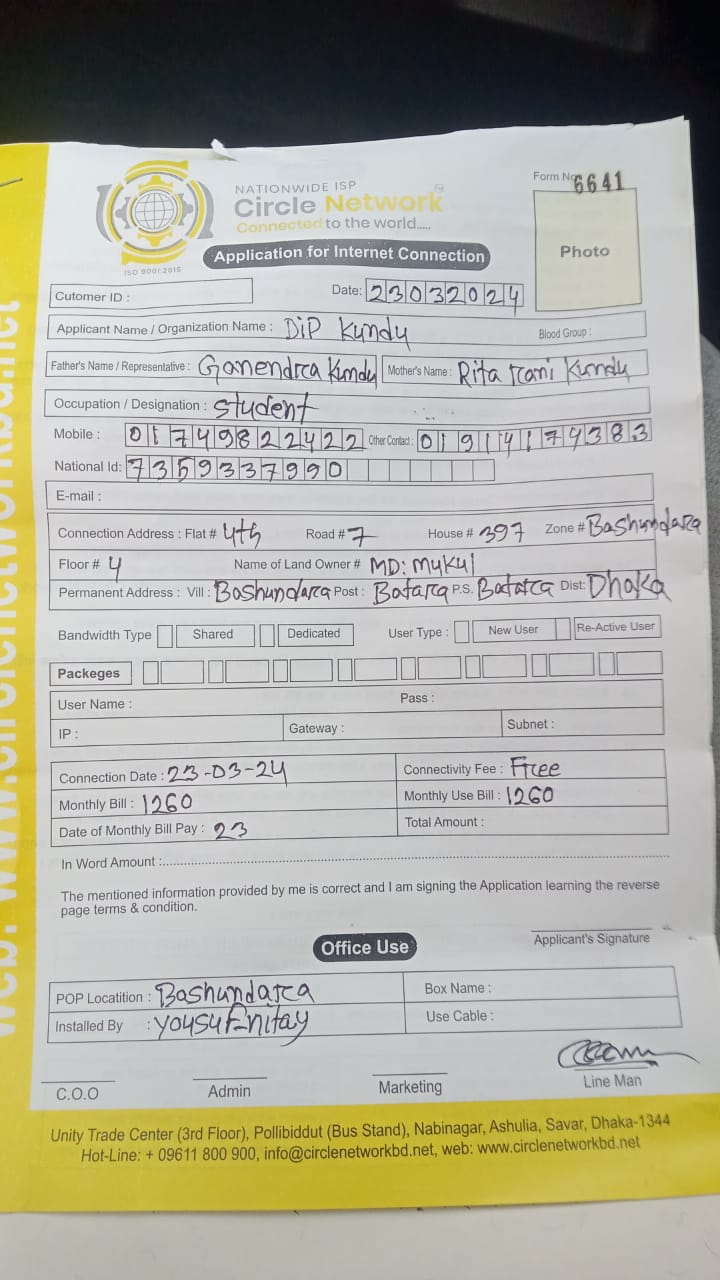 NATIONWIDE ISP
Circle Network
Connected to the world.....
ISO 9001:2015
Form No 6641
Photo
Application for Internet Connection
Cutomer ID :
Date: 23032024
Applicant Name / Organization Name : Dip Kundu Blood Group :
Father's Name / Representative : Ganendra Kundu Mother's Name : Rita rani Kundu
Occupation / Designation : student
Mobile : 01749822422 Other Contact : 01914174383
National Id: 7359337990
E-mail :
Connection Address : Flat # 4th Road # 7 House # 397 Zone # Bashundara
Floor # 4 Name of Land Owner # MD: Mukul
Permanent Address : Vill : Bashundara Post : Batara P.S. Batara Dist: Dhaka
Bandwidth Type Shared Dedicated User Type : New User Re-Active User
Packeges
User Name : Pass :
IP : Gateway : Subnet :
Connection Date : 23-03-24 Connectivity Fee : Free
Monthly Bill : 1260 Monthly Use Bill : 1260
Date of Monthly Bill Pay : 23 Total Amount :
In Word Amount :
The mentioned information provided by me is correct and I am signing the Application learning the reverse
page terms & condition.
Applicant's Signature
Office Use
POP Locatition : Bashundara Box Name :
Installed By : Yousuf Use Cable :
C.O.O Admin Marketing Line Man
Unity Trade Center (3rd Floor), Pollibiddut (Bus Stand), Nabinagar, Ashulia, Savar, Dhaka-1344
Hot-Line: + 09611 800 900, info@circlenetworkbd.net, web: www.circlenetworkbd.net
web: www.circlenetworkbd.net